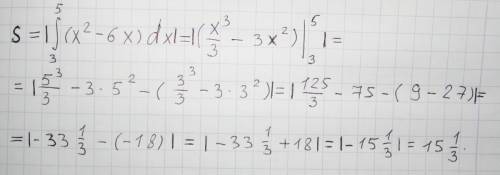 S = |∫₃⁵ (x² - 6x) dx| = |(x³/3 - 3x²)|₃⁵| =
= |5³/3 - 3 · 5² - (3³/3 - 3 · 3²)| = |125/3 - 75 - (9 - 27)| =
= |- 33 1/3 - (-18)| = |- 33 1/3 + 18| = |-15 1/3| = 15 1/3.